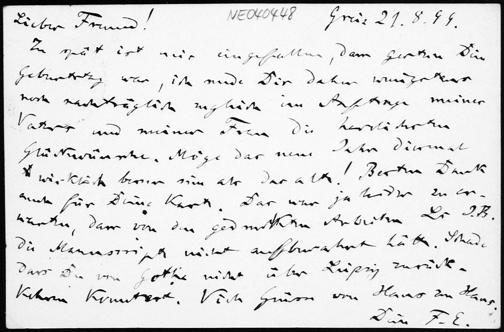 Lieber Freund! NEO40448 Greiz 21.8.44.
Zu spät ist mir eingefallen, dass gestern Dein
Geburtstag war, ich sende Dir daher wenigstens
noch nachträglich zugleich im Auftrage meiner
Vaters und meiner Frau die herzlichsten
Glückwünsche. Möge das neue Jahr diesmal
wirklich besser sein als das alte! Besten Dank
auch für Deine Karte. Das war ja leider zu er-
warten, dass von den gedruckten Arbeiten J.B.
die Manuscripte nicht aufbewahrt hätte. Schade
dass Du von Gotha nicht über Leipzig zurück-
kehren konntest. Viele Grüsse von Haus zu Haus.
Dein F.E.